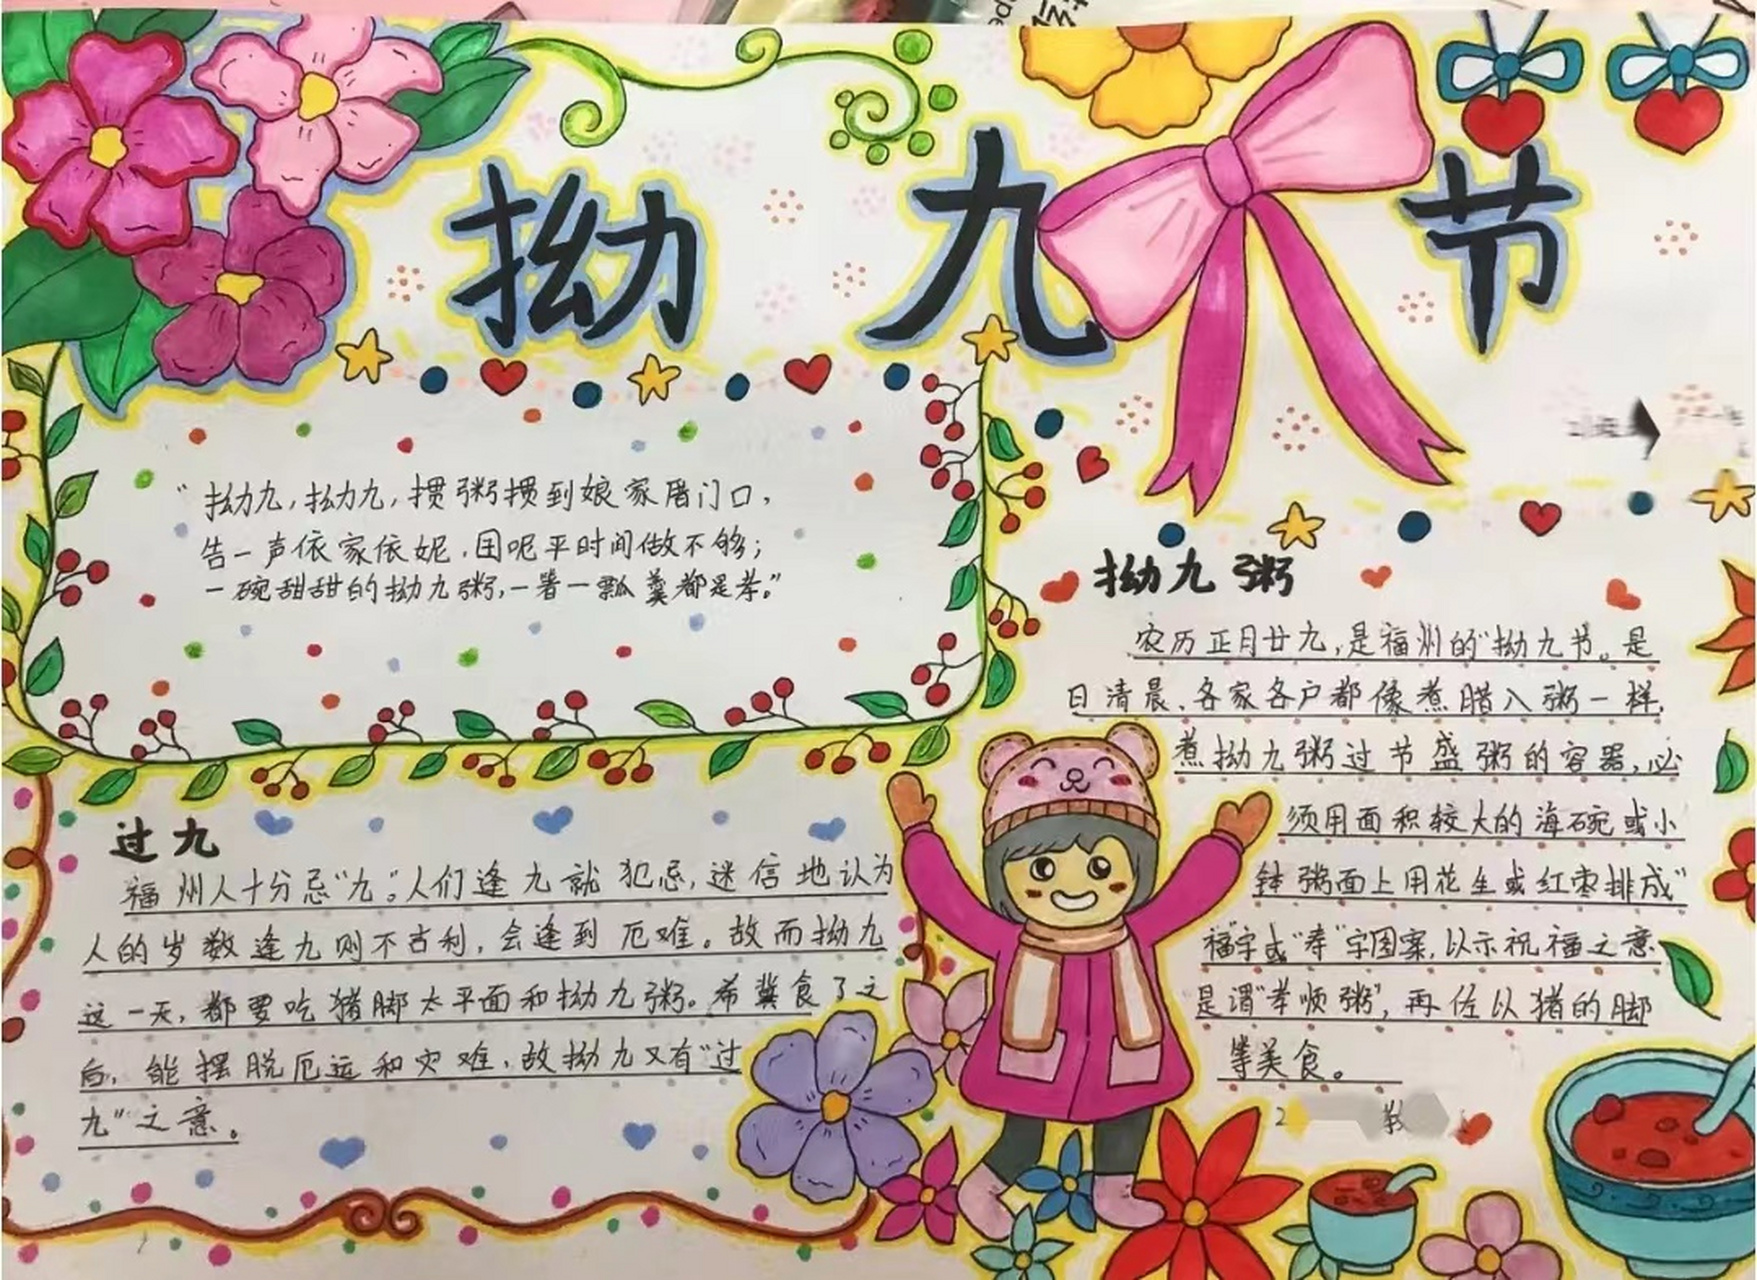 拗九节
“拗九,拗九,掼粥掼到娘家厝门口,
告一声依家依妮,囝呢平时间做不够;
一碗甜甜的拗九粥,一箸一瓢羹都是孝。”
过九
福州人十分忌“九”。人们逢九就犯忌,迷信地认为
人的岁数逢九则不吉利,会逢到厄难。故而拗九
这一天,都要吃猪脚太平面和拗九粥。希冀食了之
后,能摆脱厄运和灾难,故拗九又有“过
九”之意。
拗九粥
农历正月廿九,是福州的“拗九节。是
日清晨、各家各户都像煮腊八粥一样,
煮拗九粥过节盛粥的容器,必
须用面积较大的海碗或小
钵粥面上用花生或红枣排成“
福”字或“寿”字图案,以示祝福之意
是谓“孝顺粥”,再佐以猪的脚
等美食。